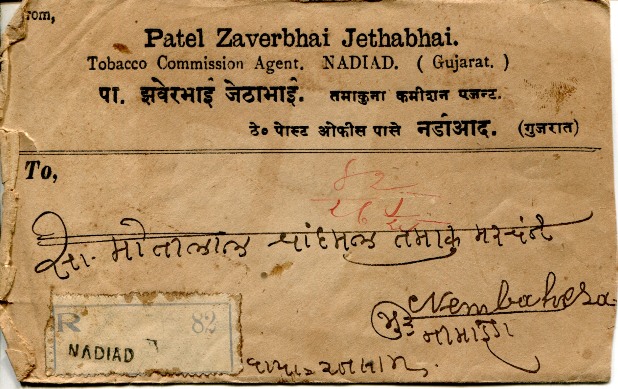 From,
Patel Zaverbhai Jethabhai.
Tobacco Commission Agent. NADIAD. ( Gujarat. )
पा. झवेरभाई जेठाभाई. तमाकुना कमीशन एजन्ट.
ठे० पोस्ट ओफीस पासे नडीआद. (गुजरात)
To,
मोतीलाल चांदमल तमाकु मरचंट
Nembahesa
R 82
NADIAD